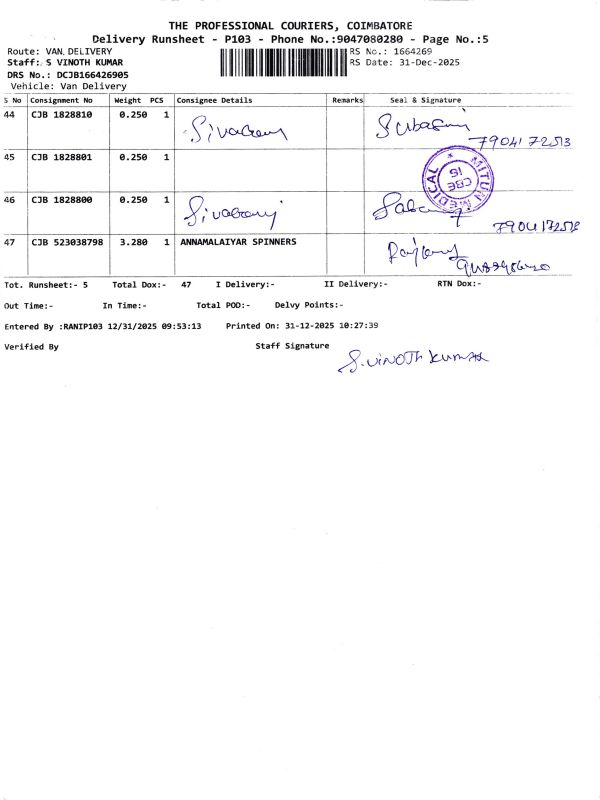 THE PROFESSIONAL COURIERS, COIMBATORE
Delivery Runsheet - P103 - Phone No.:9047080280 - Page No.:5
Route: VAN DELIVERY RS No.: 1664269
Staff: S VINOTH KUMAR RS Date: 31-Dec-2025
DRS No.: DCJB166426905
Vehicle: Van Delivery
S No Consignment No Weight PCS Consignee Details Remarks Seal & Signature
44 CJB 1828810 0.250 1
45 CJB 1828801 0.250 1
MITUN MEDICAL
CBE
16
46 CJB 1828800 0.250 1
47 CJB 523038798 3.280 1 ANNAMALAIYAR SPINNERS
Tot. Runsheet:- 5 Total Dox:- 47 I Delivery:- II Delivery:- RTN Dox:-
Out Time:- In Time:- Total POD:- Delvy Points:-
Entered By :RANIP103 12/31/2025 09:53:13 Printed On: 31-12-2025 10:27:39
Verified By Staff Signature
S.VINOTH KUMAR